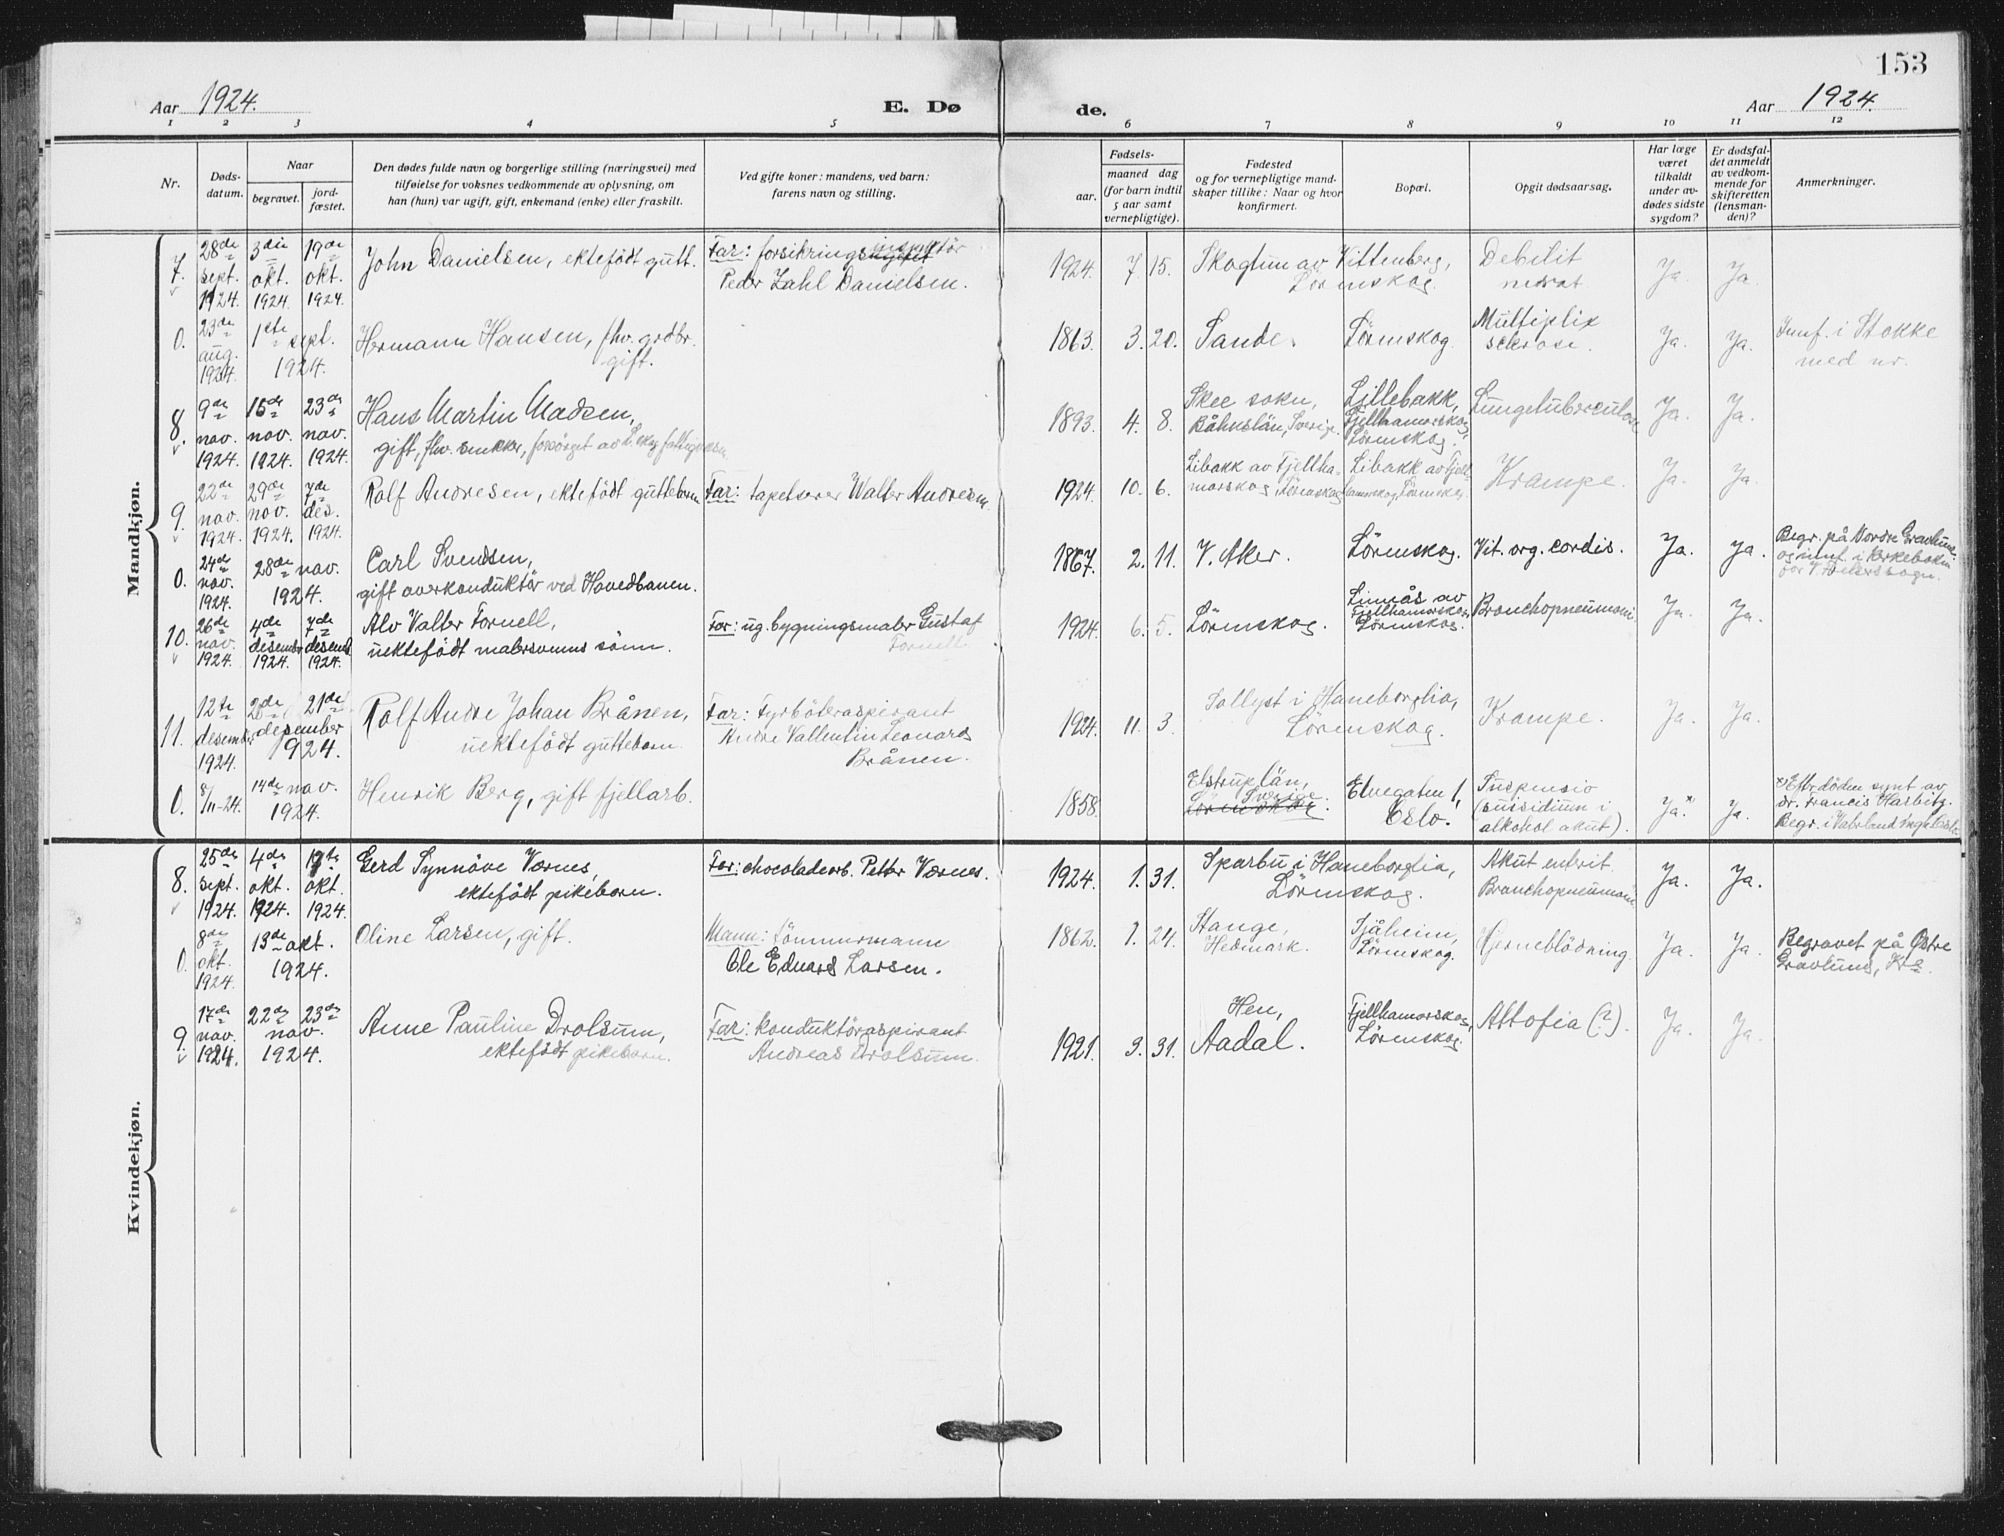 153
Aar 1924.
E. Dø
de.
Aar 1924.
1 2 3 4 5 6 7 8 9 10 11 12
Nr.
Døds-
datum.
Naar
begravet.
jord-
fæstet.
Den dødes fulde navn og borgerlige stilling (næringsvei) med
tilføielse for voksnes vedkommende av oplysning, om
han (hun) var ugift, gift, enkemand (enke) eller fraskilt.
Ved gifte koner: mandens, ved barn:
farens navn og stilling.
Fødsels-
aar.
maaned dag
(for barn indtil
5 aar samt
vernepligtige).
Fødested
og for vernepligtige mand-
skaper tillike: Naar og hvor
konfirmert.
Bopæl.
Opgit dødsaarsag.
Har læge
været
tilkaldt
under av-
dødes sidste
sygdom?
Er dødsfal-
det anmeldt
av vedkom-
mende for
skifteretten
(lensman-
den)?
Anmerkninger.
Mandkjøn.
7. 28de sept. 1924. 3die okt. 1924. 19de okt. 1924.
John Danielsen, ektefödt gutt.
Far: forsikringsinspektör
Peder Zahl Danielsen.
1924. 7. 15.
Skogtun av Vittenberg,
Lörenskog.
Debilit
Ja. Ja.
0. 23de aug. 1924. 1ste sept. 1924.
Hermann Hansen, fhv. grdbr.
gift.
1863. 3. 20. Sande. Lörenskog.
Multiplix
sclerose.
Ja. Ja.
Innf. i Stokke
med nr.
8. 9de nov. 1924. 15de nov. 1924. 23de nov. 1924.
Hans Martin Madsen,
gift, fhv. snekker, forsörget av L.skog fattigvesen
1893. 4. 8.
Skee sokn,
Båhuslän, Sverige.
Lillebakk,
Fjellhamarskog,
Lörenskog.
Lungetuberculose
Ja. Ja.
9. 22de nov. 1924. 29de nov. 1924. 7de des. 1924.
Rolf Andresen, ektefödt guttebarn
Far: tapetserer Walter Andresen
1924. 10. 6.
Libakk av Fjellha-
marskog, Lörenskog
Libakk av Fjell-
hamarskog, Lörenskog.
Krampe. Ja. Ja.
0. 24de nov. 1924. 28de nov. 1924.
Carl Svendsen,
gift overkonduktör ved Hovedbanen.
1867. 2. 11. V. Aker. Lörenskog. Vit. org. cordis. Ja. Ja.
Begr. på Nordre Gravlund
og innf. i kirkeboken
for V. Akers sogn.
10. 26de nov. 1924. 4de desember 1924. 7de desemb. 1924.
Alv Valter Fornell,
uektefödt malersvenns sönn.
Far: ug. bygningsmaler Gustaf
Fornell.
1924. 6. 5. Lörenskog.
Linnås av
Fjellhamarskog,
Lörenskog.
Bronchopneumoni. Ja. Ja.
11. 12te desember 1924. 20de 21de desember 1924.
Rolf Andre Johan Brånen,
uektefödt guttebarn.
Far: Fyrböteraspirant
Andre Vallentin Leonard
Brånen.
1924. 11. 3.
Sollyst i Haneborglia,
Lörenskog.
Krampe. Ja. Ja.
0. 8/11-24. 14de nov. 1924.
Henrik Berg, gift fjellarb.
1858.
Sverige.
Elvegaten 1,
Oslo.
Suspensio
(suisidium i
alkohol akut).
Ja.x) Ja.
x) Efter döden synt av
dr. Francis Harbitz.
Begr. i Vaterland sogn Oslo
Kvindekjøn.
8. 25de sept. 1924. 4de okt. 1924. 19de okt. 1924.
Gerd Synnöve Værnes,
ektefödt pikebarn.
Far: chocoladearb. Petter Værnes.
1924. 1. 31.
Sparbu i Haneborglia,
Lörenskog.
Akut enterit
Bronchopneumoni
Ja. Ja.
0. 8de okt. 1924. 13de okt. 1924.
Oline Larsen, gift.
Mann: tömmermann
Ole Edvard Larsen.
1862. 1. 24.
Stange,
Hedmark.
Sjåheim,
Lörenskog.
Hjerneblödning. Ja. Ja.
Begravet på Østre
Gravlund, Kra.
9. 17de nov. 1924. 22de 23de nov. 1924.
Anne Pauline Drolsum,
ektefödt pikebarn.
Far: konduktöraspirant
Andreas Drolsum.
1921. 3. 31.
Hen,
Aadal.
Fjellhamarskog,
Lörenskog.
Attofia (?). Ja. Ja.